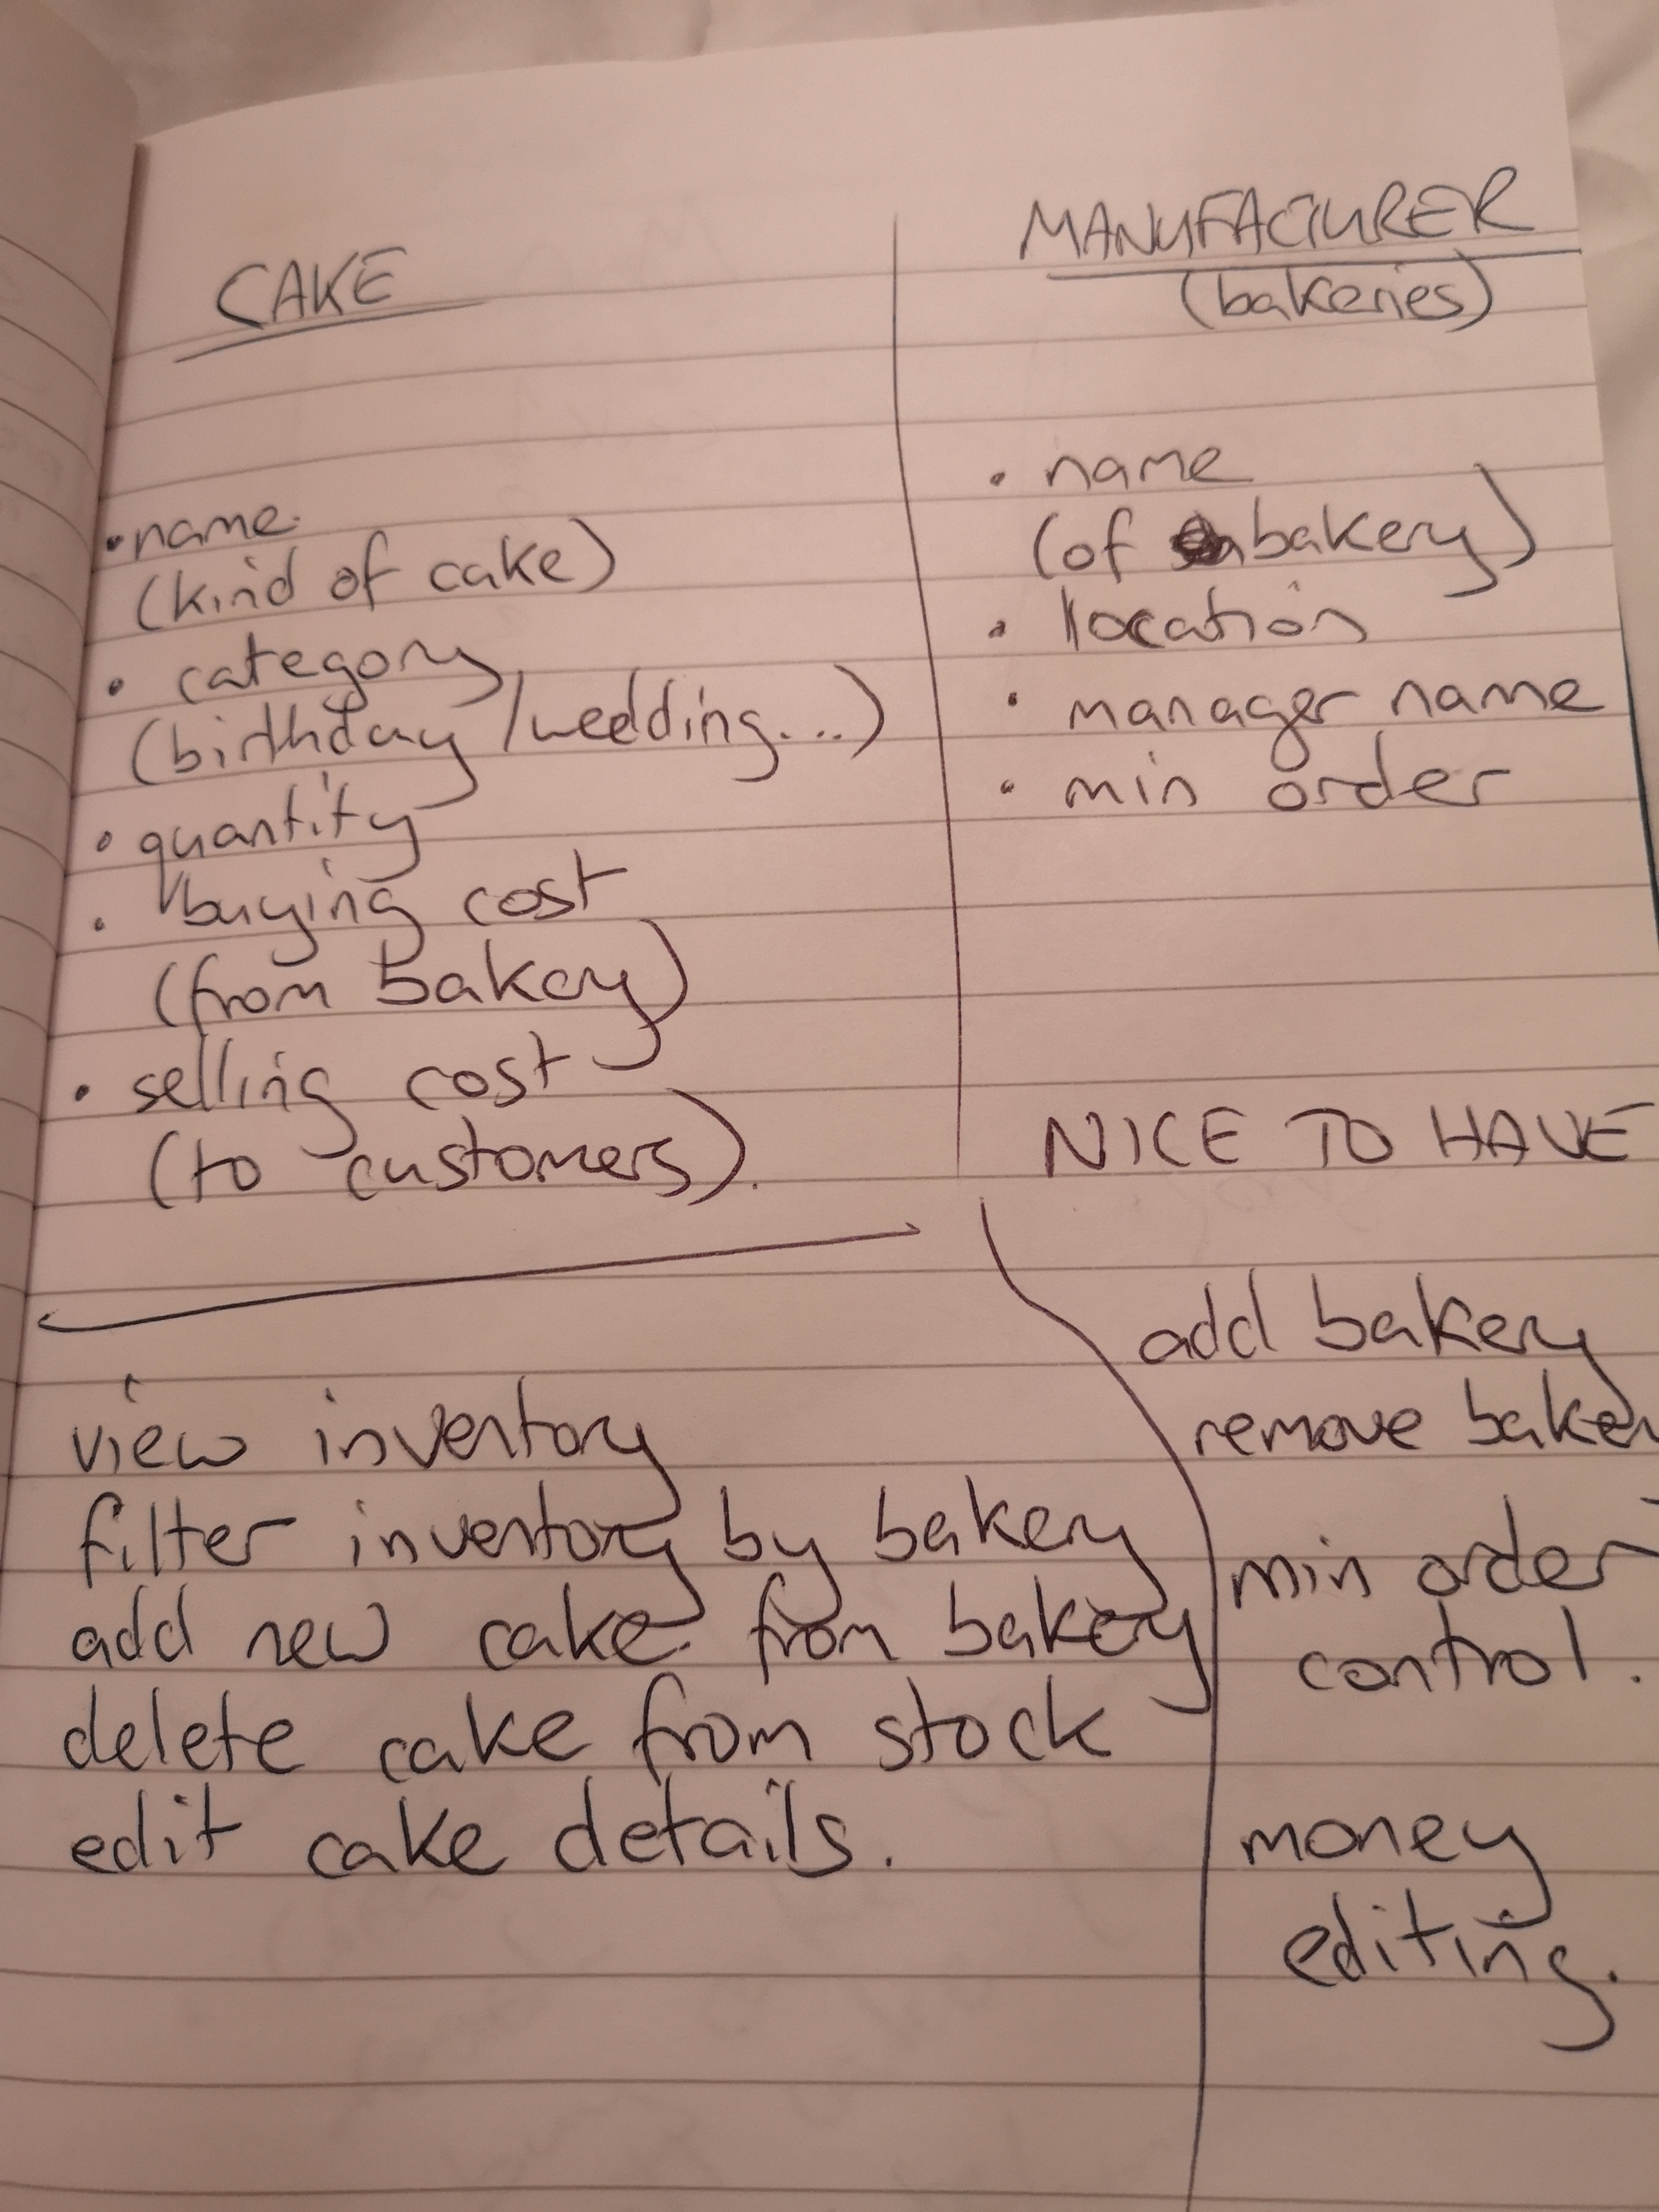 CAKE
• name.
(kind of cake)
• category
(birthday/wedding...)
• quantity
• buying cost
(from bakery)
• selling cost
(to customers).
MANUFACTURER
(bakeries)
• name
(of bakery)
• location
• manager name
• min order
view inventory
filter inventory by bakery
add new cake from bakery
delete cake from stock
edit cake details.
NICE TO HAVE
add bakery
remove baker
min order
control.
money
editing.